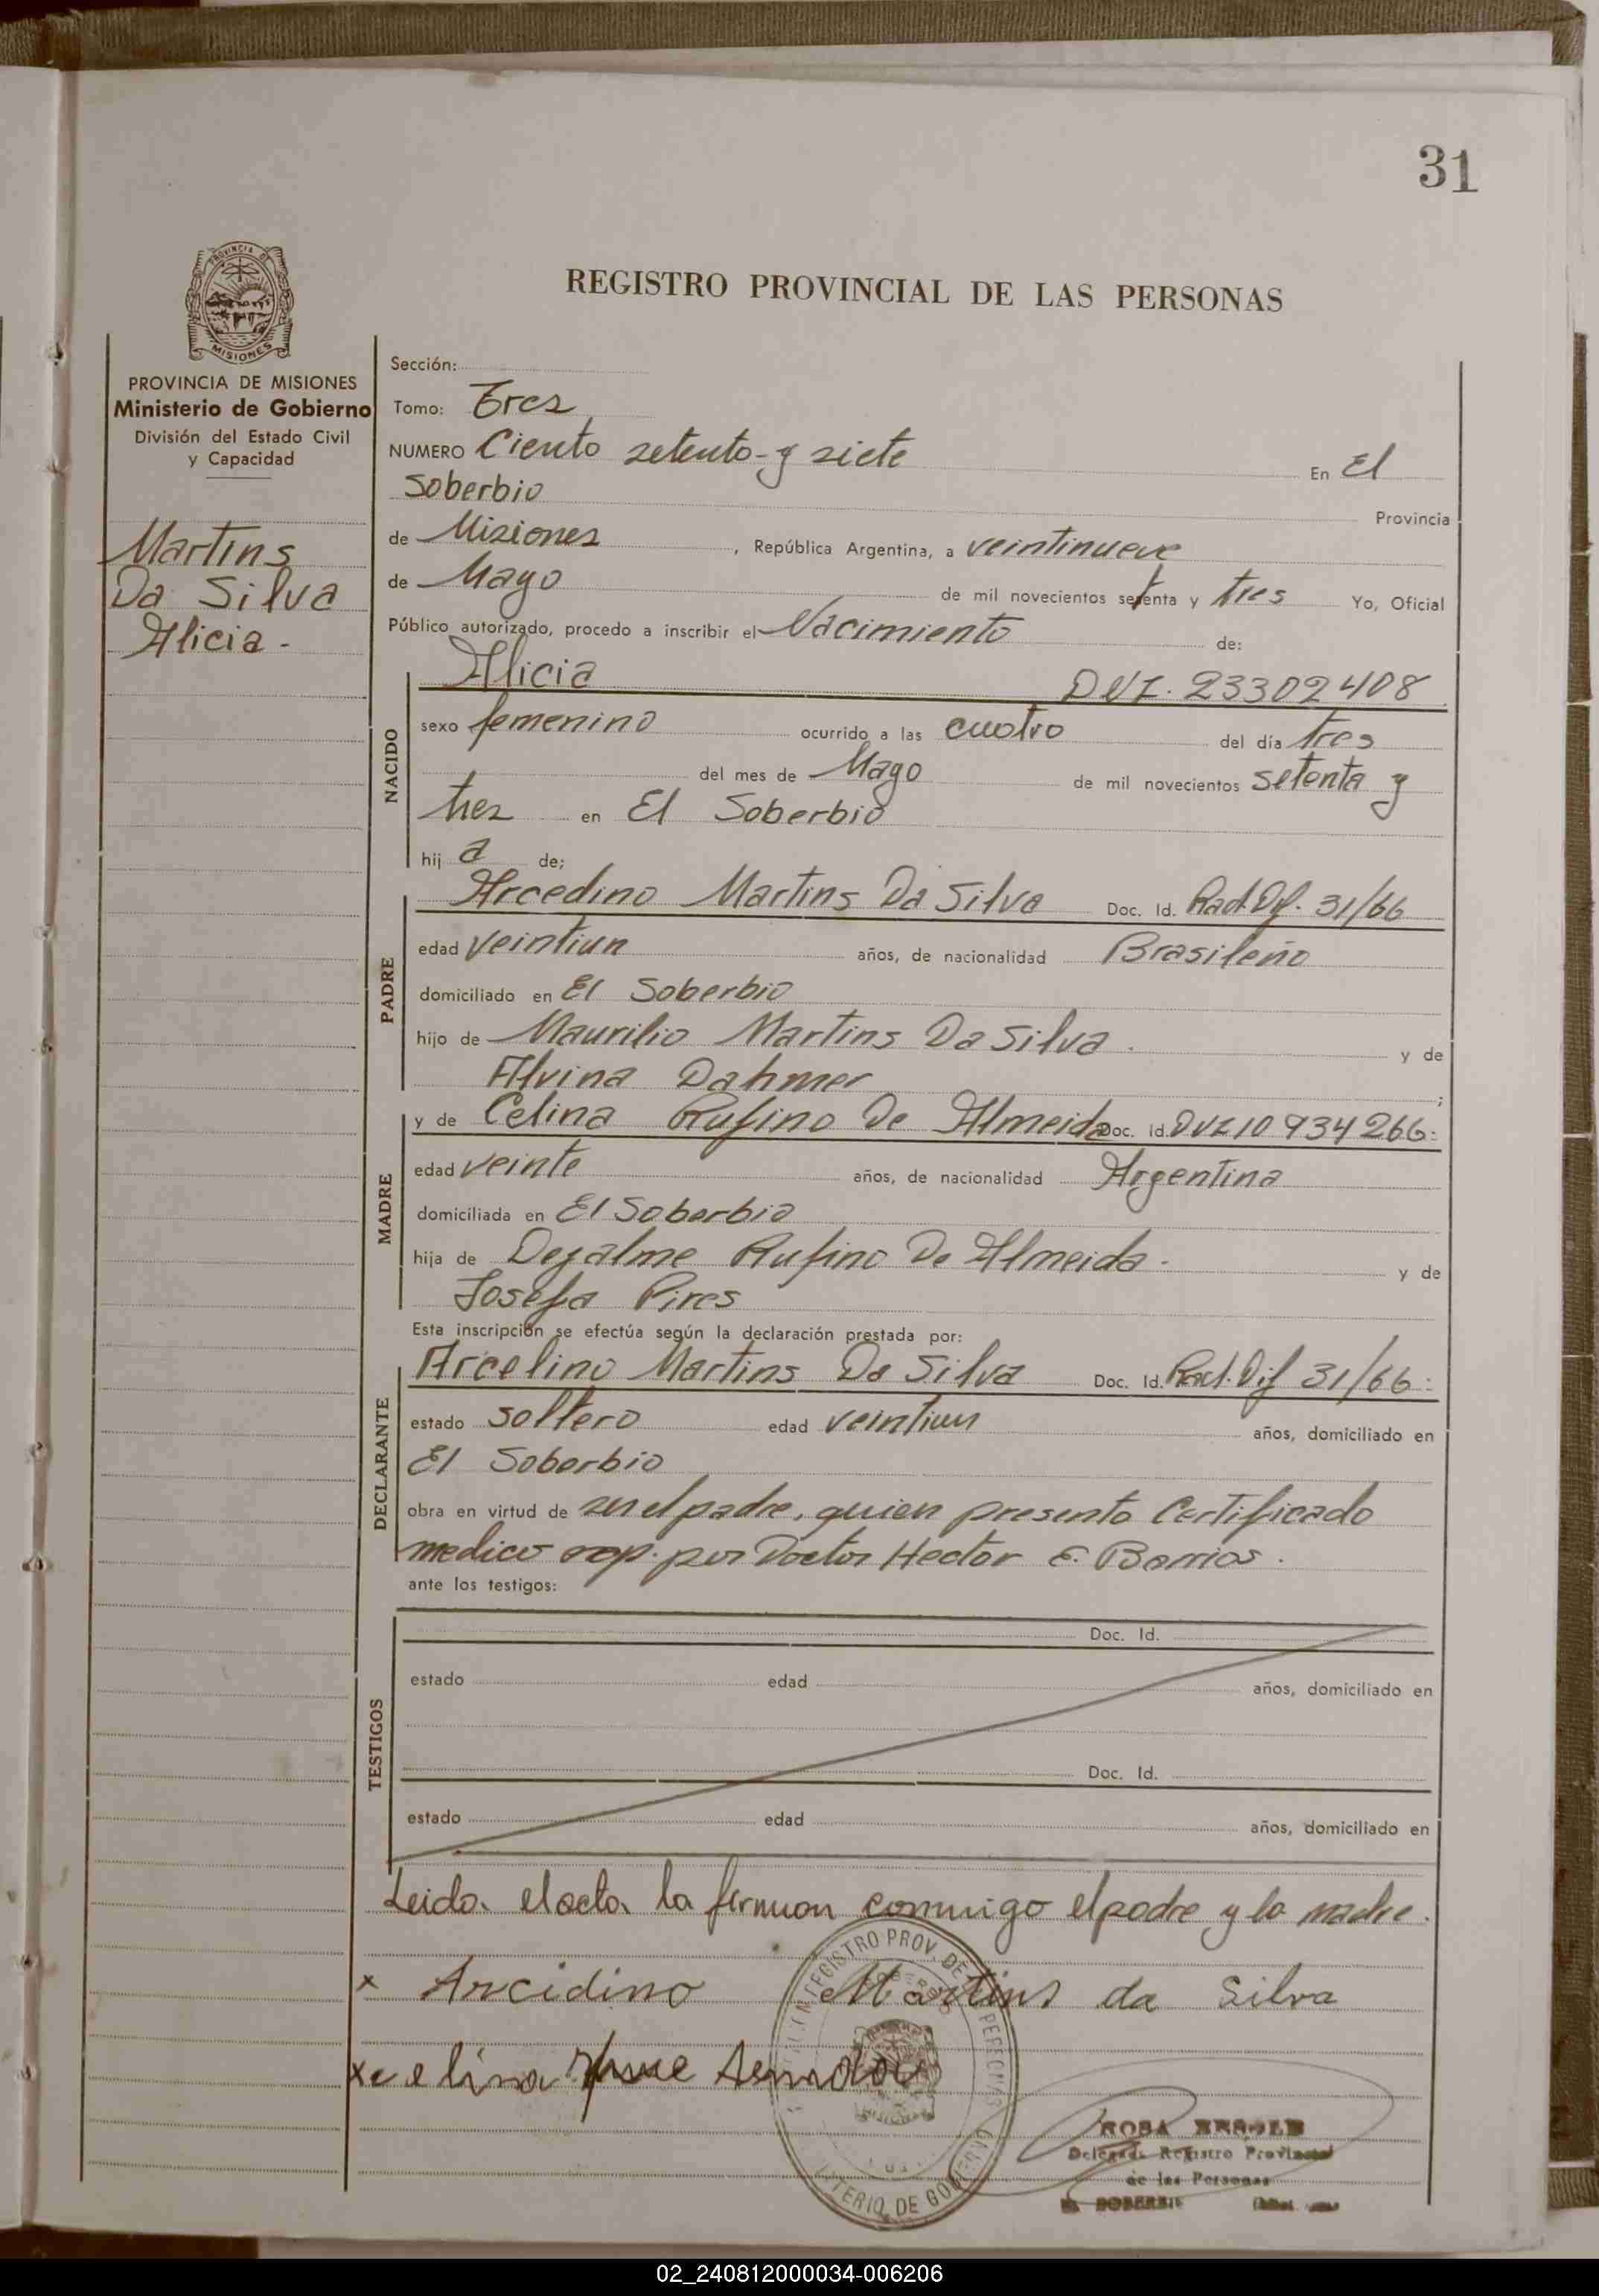 31
PROVINCIA DE
MISIONES
REGISTRO PROVINCIAL DE LAS PERSONAS
PROVINCIA DE MISIONES
Ministerio de Gobierno
División del Estado Civil
y Capacidad
Martins
Da Silva
Alicia -
Sección:
Tomo: Tres
NUMERO Ciento setenta y siete En El
Soberbio Provincia
de Misiones, República Argentina, a veintinueve
de Mayo de mil novecientos setenta y tres Yo, Oficial
Público autorizado, procedo a inscribir el Nacimiento de:
NACIDO
Alicia DNI. 23302408
sexo femenino ocurrido a las cuatro del día tres
del mes de Mayo de mil novecientos setenta y
tres en El Soberbio
hij a de;
PADRE
Arcedino Martins Da Silva Doc. Id. Rad. Dif. 31/66
edad veintiun años, de nacionalidad Brasileño
domiciliado en El Soberbio
hijo de Maurilio Martins Da Silva. y de
Alvina Dahmer ;
MADRE
y de Celina Rufino De Almeida Doc. Id. DNI 10934266:
edad veinte años, de nacionalidad Argentina
domiciliada en El Soberbio
hija de Dejalme Rufino De Almeida. y de
Josefa Pires
Esta inscripción se efectúa según la declaración prestada por:
DECLARANTE
Arcelino Martins Da Silva Doc. Id. Rad. Dif 31/66:
estado soltero edad veintiun años, domiciliado en
El Soberbio
obra en virtud de ser el padre, quien presento Certificado
medico exp. por Doctor Hector E. Barrios.
ante los testigos:
TESTIGOS
Doc. Id.
estado edad años, domiciliado en
Doc. Id.
estado edad años, domiciliado en
Leida el acta la firman conmigo el padre y la madre.
x Arcidino Martins da Silva
x celina
REGISTRO PROV. DE
DE GOBIERNO
ROSA
Delegada Registro Provincial
de las Personas
EL SOBERBIO
02_240812000034-006206